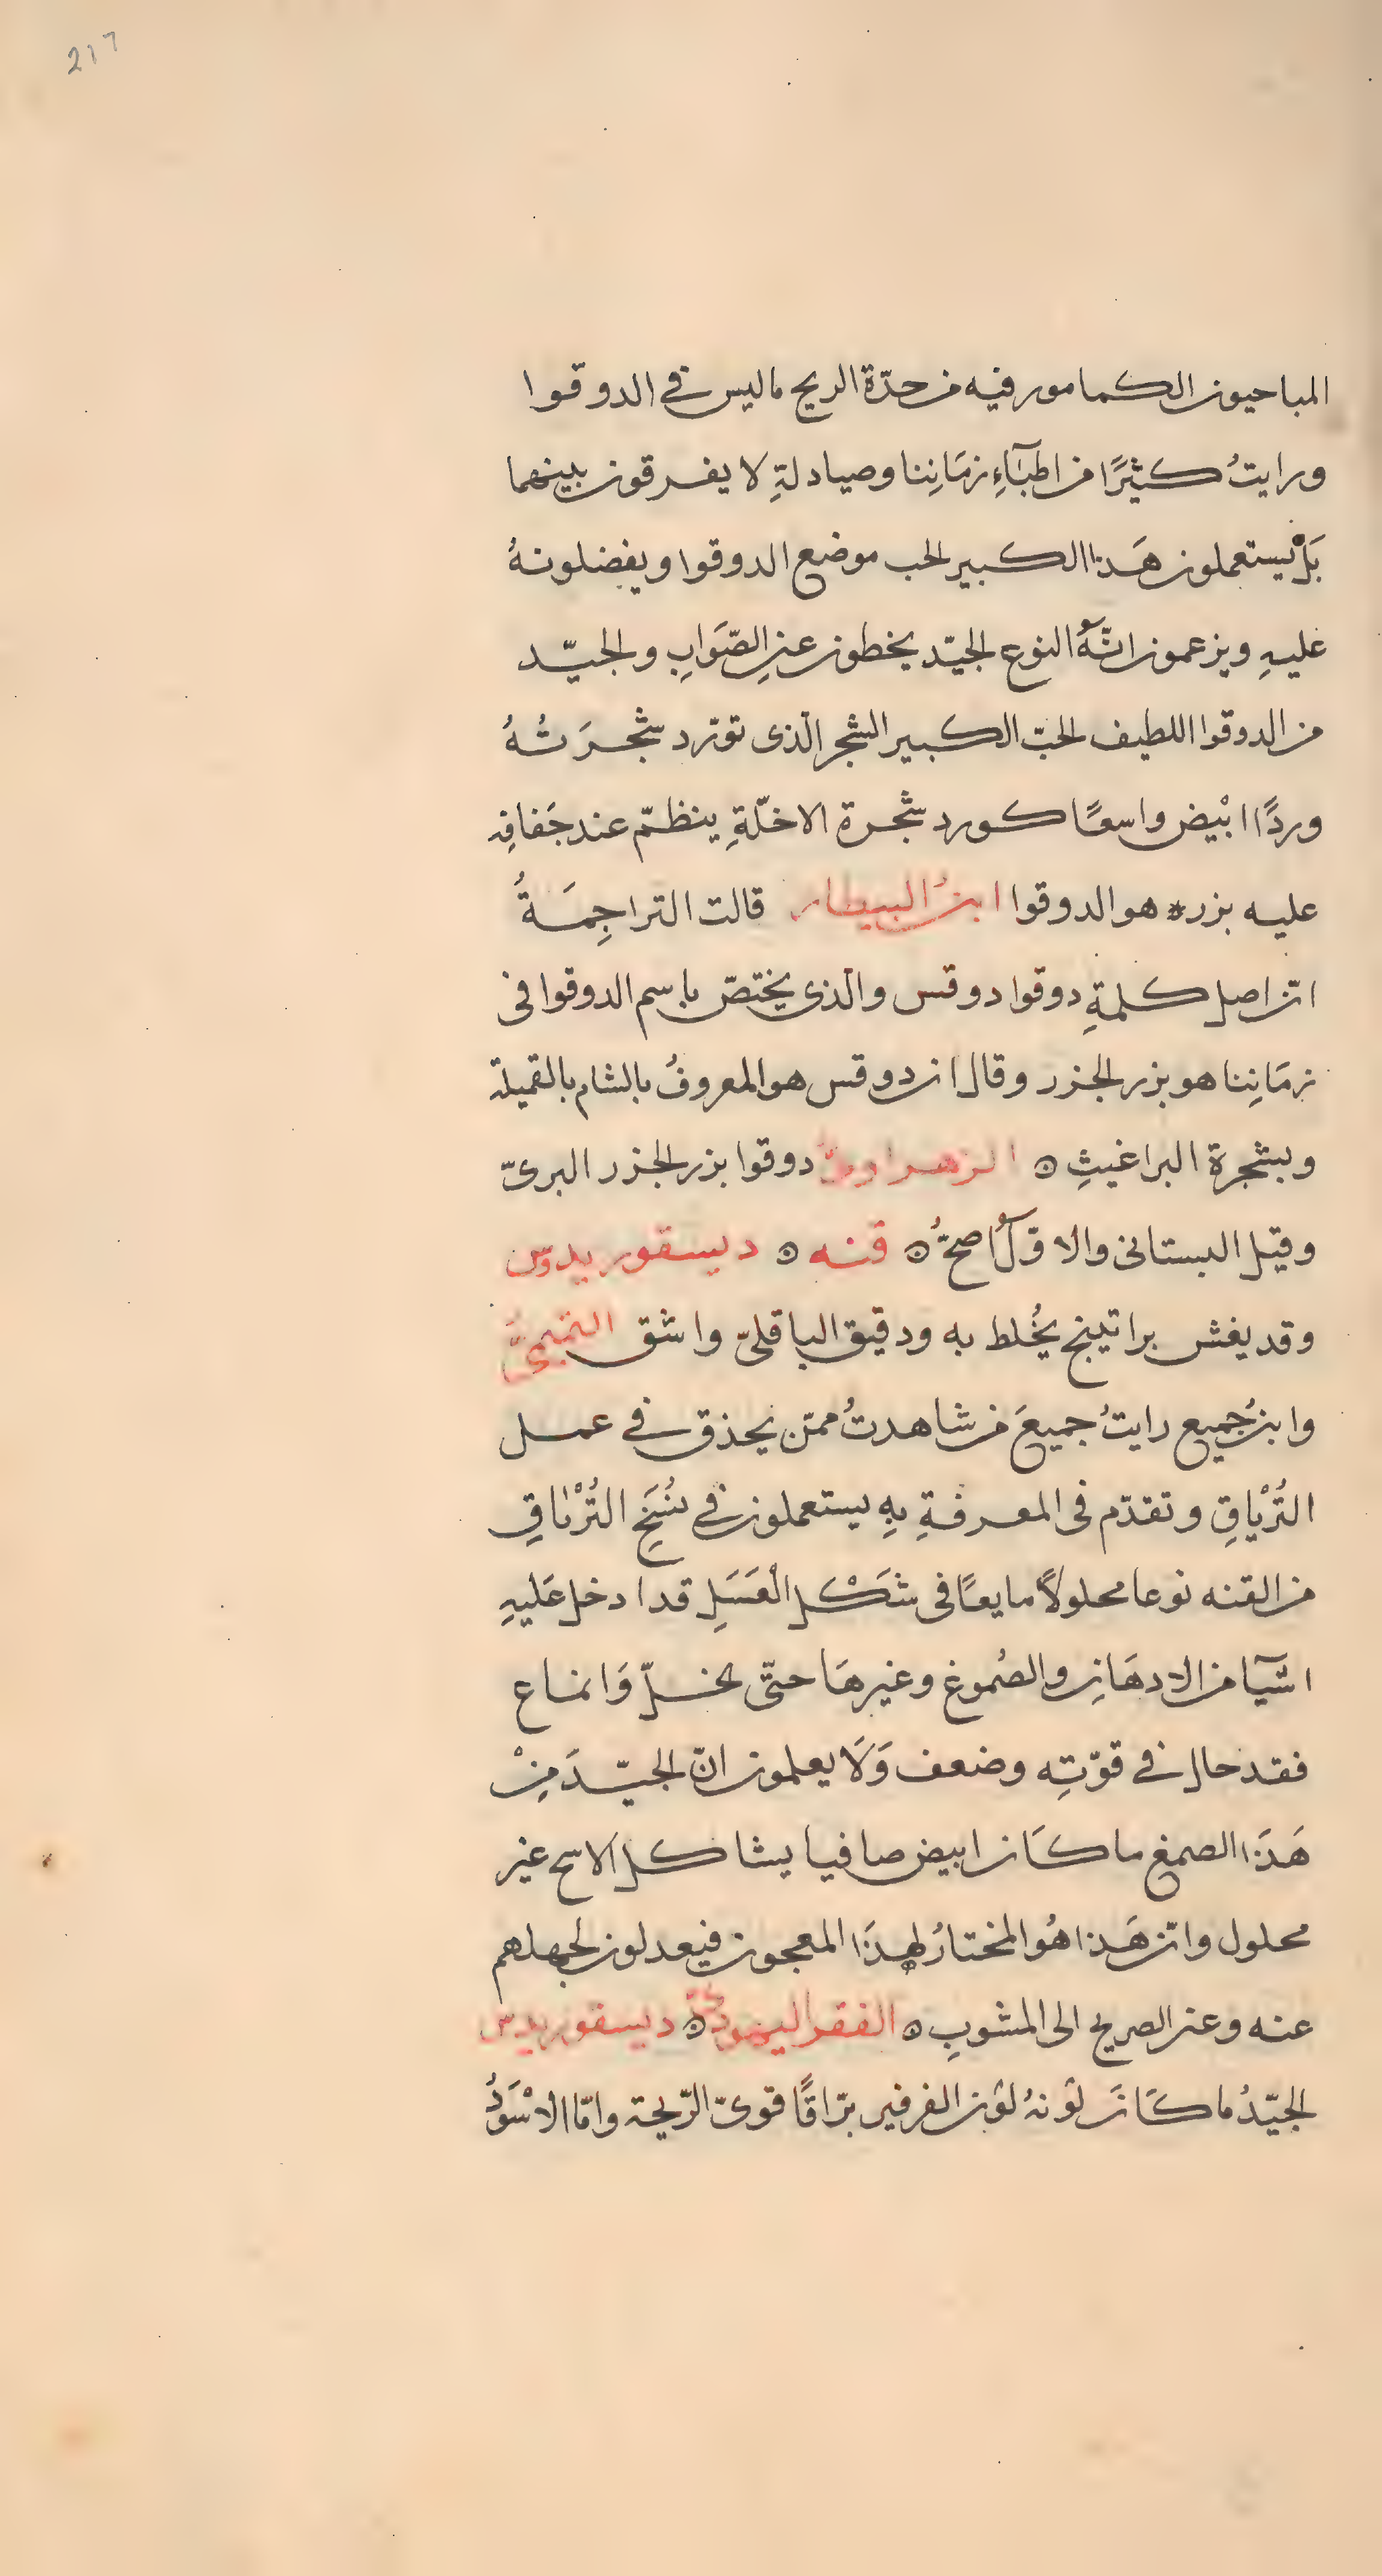 217
المباحيون الكمامور فيه من حدّة الريح ماليس في الدوقوا
ورايتُ كثيرًا من اطبآءِ زمَانِنا وصيادلةِ لا يفرقون بينهما
بَلْ يستعملون هَذا الكبير الحب موضع الدوقوا ويفضلونهُ
عليهِ ويزعمون انّهُ النوع الجيّد يخطون عنِ الصّوَابِ والجيّد
من الدوقوا اللطيف الحبّ الكبير الشجر الّذى تورّد شجرَتُهُ
وردًا ابْيض واسعًا كورد شجرة الاخلّةِ ينظمّ عند جَفافهِ
عليه بزره هو الدوقوا ابنُ البيطار قالت التراجِمَةُ
انّ اصل كلمةِ دوقوا دوقس والّذى يختصّ باسم الدوقوا فى
زمَانِنا هو بزر الجزر وقال ان دوقس هو المعروفُ بالشام بالقميلة
وبشجرة البراغيثِ ۞ الزهراوىّ دوقوا بزر الجزر البرىّ
وقيل البستانى والاوّلُ اصحُّ ۞ قنه ۞ ديسقوريدوس
وقد يغش براتينج يُخلط به ودقيق الباقلىّ واشق التميمىُّ
وابنُ جُميع رايتُ جميعَ من شاهدتُ ممّن يحذق في عمل
التُرْياقِ وتقدّم فى المعرفةِ بِهِ يستعملون في نُسَخِ التُرْيٰاقِ
من القنه نوعا محلولاً مايعًا فى شَكْل الْعَسَلِ قد ادخل عَليهِ
اشّيآ من الادهَانِ والصُموغ وغيرهَا حتّى نخلّ وَانماع
فقد حال في قوّتِه وضعف وَلَا يعلمون انّ الجيّدَ مِنْ
هَذَا الصمغ ما كَان ابيض صافيا يشاكل الاسح غير
محلول وانّ هَذا هُو المختارُ لِهذَا المعجون فيعدلون لجهلهم
عنه وعن الصريح الى المشوبِ ۞ الفقر اليهودىّ ۞ ديسقوريدس
الجيّدُ ما كَانَ لَونهُ لَون الفرفير برّاقًا قوىّ الرّيحة وامّا الاسْوَدُ